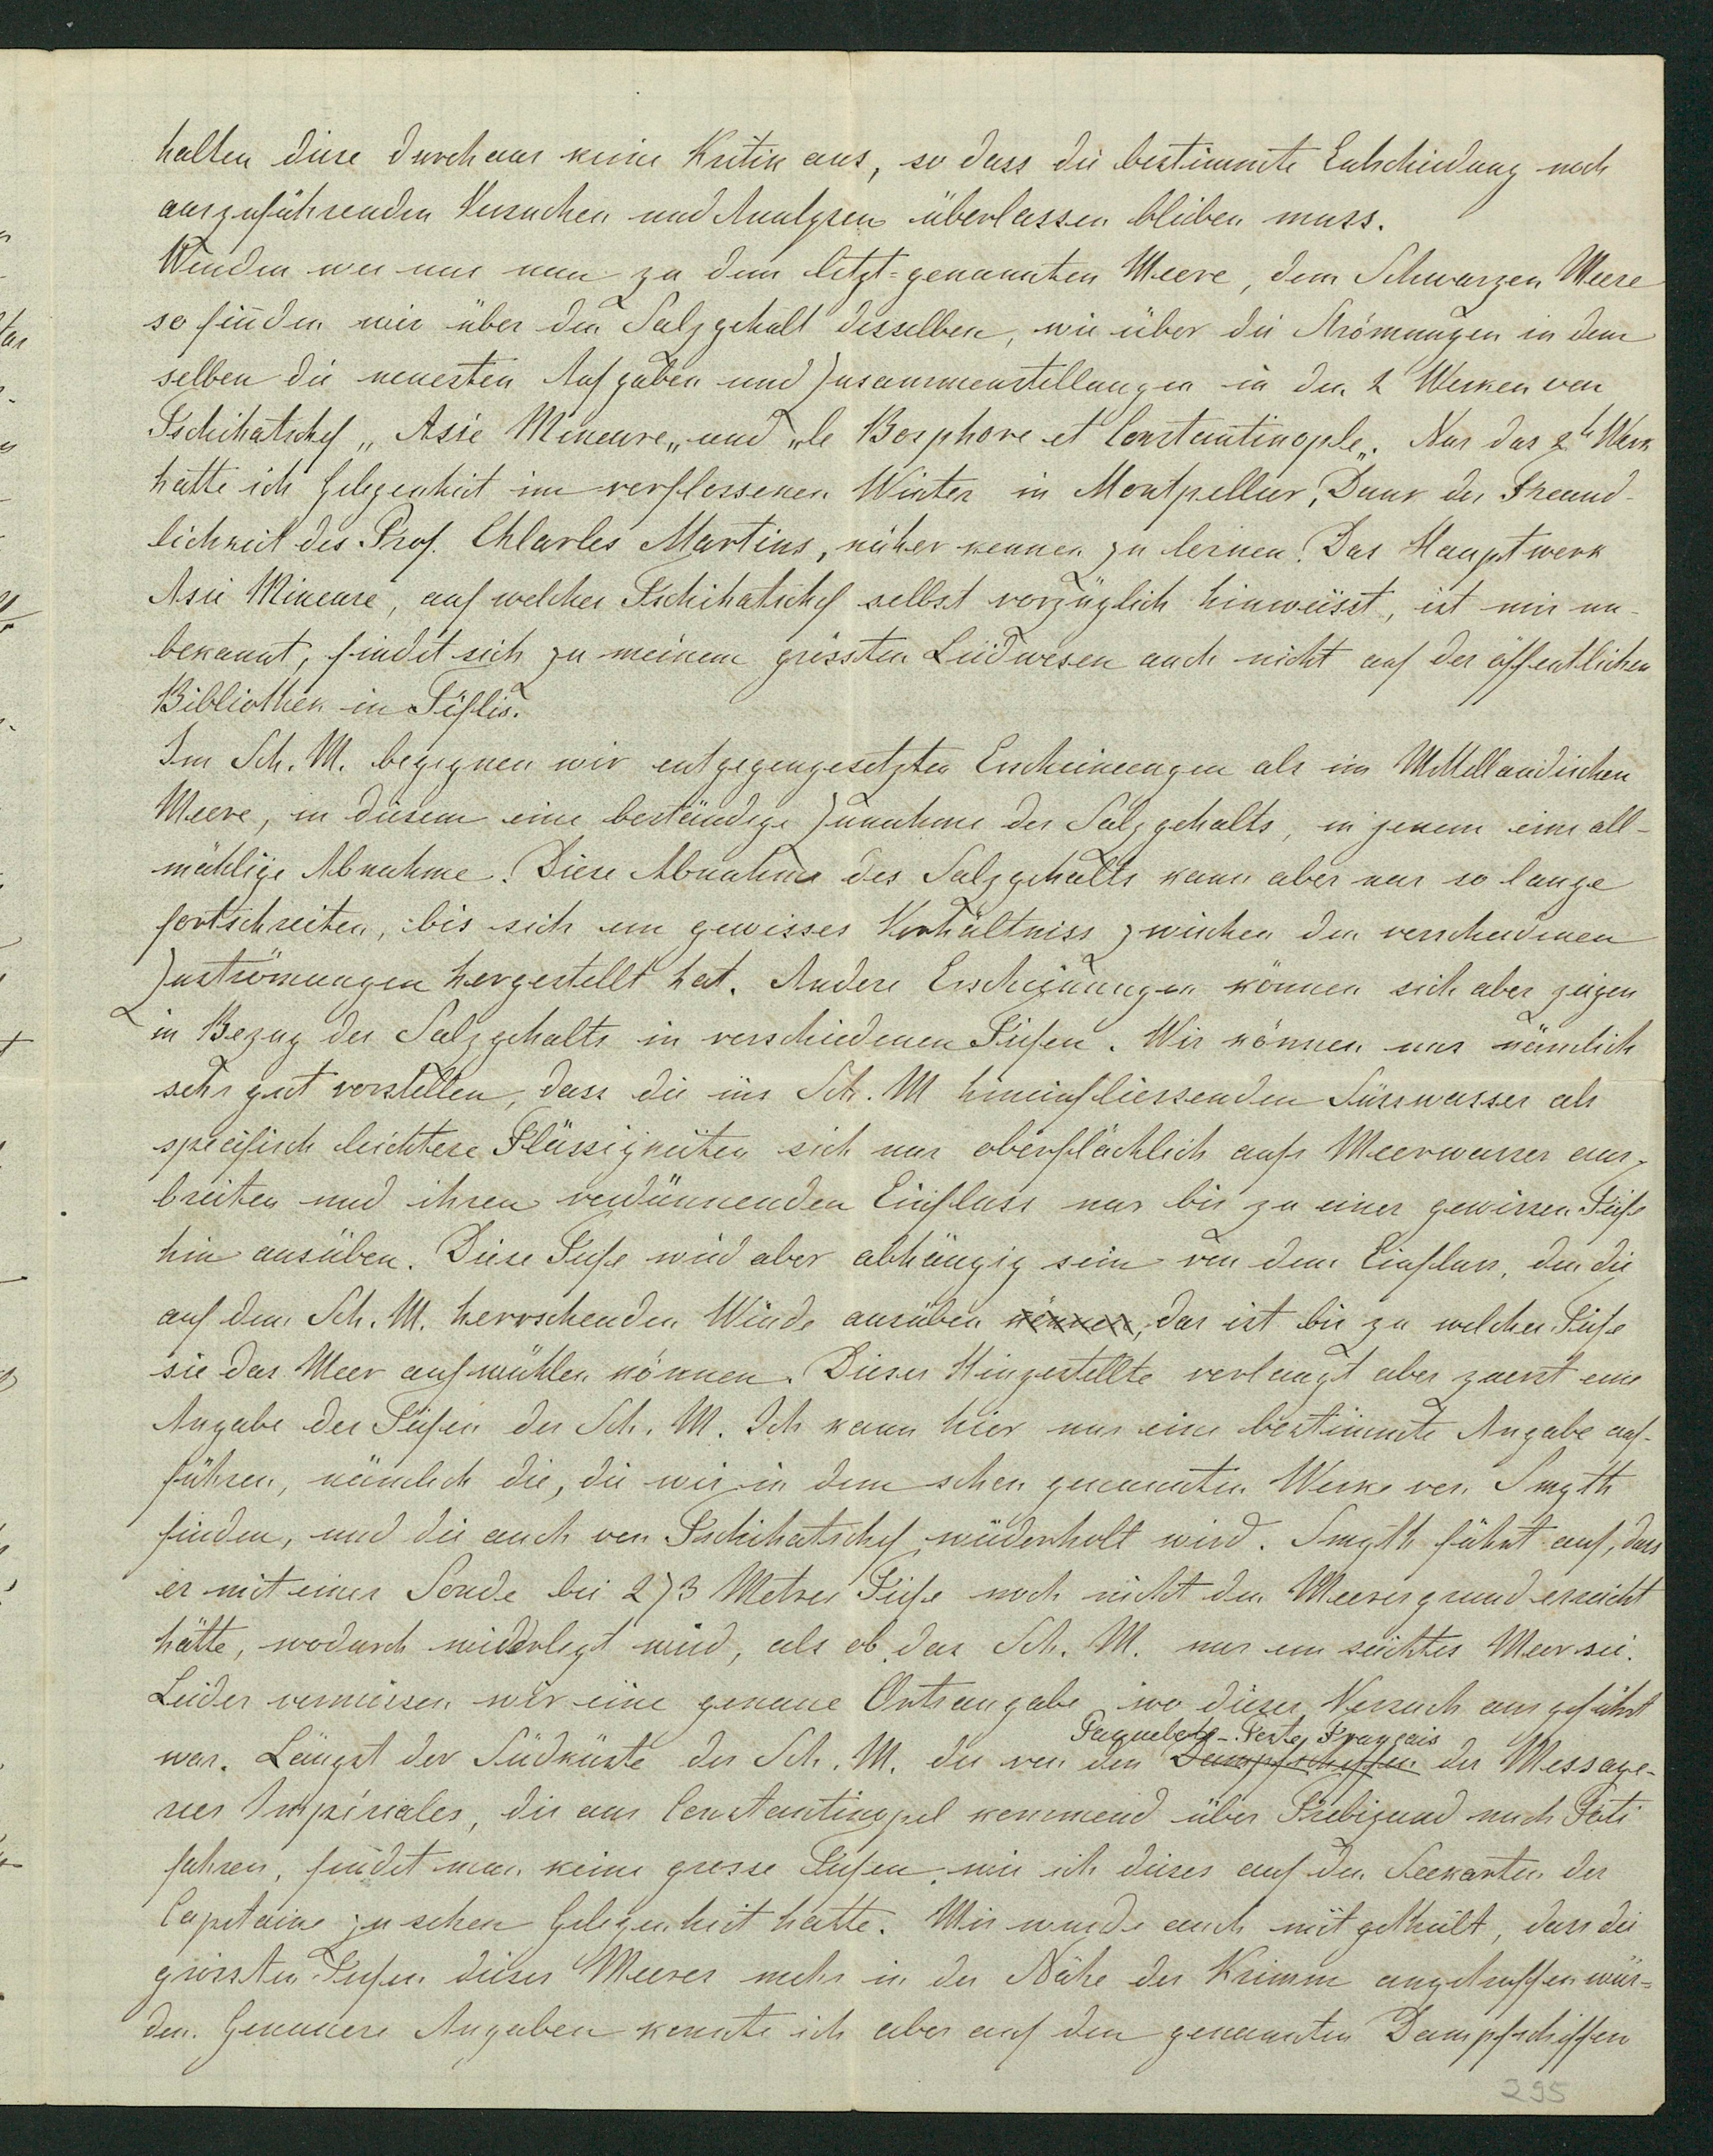 halten diese durchaus keine Kritik aus, so dass die bestimmte Entscheidung noch
auszuführenden Versuchen und Analysen überlassen bleiben muss.
Wenden wir uns nun zu dem letzt-genannten Meere, dem Schwarzen Meere
so finden wir über den Salzgehalt desselben, wie über die Strömungen in dem
selben die neuesten Aufgaben und Zusammenstellungen in den 2 Werken von
Tschihatschef „Asie Mineure„ und „le Bosphore et Constantinople„. Nur das 2te Werk
hatte ich Gelegenheit im verflossenen Winter in Montpellier, Dank der Freund-
lichkeit des Prof. Chlarles Martins, näher kennen zu lernen. Das Hauptwerk
Asie Mineure, auf welches Tschihatschef selbst vorzüglich hinweisst, ist mir un-
bekannt, findet sich zu meinem grössten Leidwesen auch nicht auf der öffentlichen
Bibliothek in Tiflis.
Im Sch. M. begegnen wir entgegengesetzten Erscheinungen als im Mittelländischen
Meere, in diesem eine beständige Zunahme des Salzgehalts, in jenem eine all-
mählige Abnahme. Diese Abnahme des Salzgehalts kann aber nur so lange
fortschreiten, bis sich ein gewisses Verhältniss zwischen den verschiedenen
Zuströmungen hergestellt hat. Andere Erscheinungen können sich aber zeigen
in Bezug des Salzgehalts in verschiedenen Tiefen. Wir können uns nämlich
sehr gut vorstellen, dass die ins Sch. M hineinfliessenden Süsswasser als
specifisch leichtere Flüssigkeiten sich nur oberflächlich aufs Meerwasser aus-
breiten und ihren verdünnenden Einfluss nur bis zu einer gewissen Tiefe
hin ausüben. Diese Tiefe wird aber abhängig sein von dem Einfluss, den die
auf dem Sch. M. herrschenden Winde ausüben können, das ist bis zu welcher Tiefe
sie das Meer aufwühlen können. Dieses Hingestellte verlangt aber zuerst eine
Angabe der Tiefen des Sch. M. Ich kann hier nur eine bestimmte Angabe auf-
führen, nämlich die, die wir in dem schon genannten Werke von Smyth
finden, und die auch von Tschihatschef wiederholt wird. Smyth führt auf, dass
er mit einer Sonde bei 273 Metres Tiefe noch nicht den Meeresgrund erreicht
hätte, wodurch widerlegt wird, als ob das Sch. M. nur ein seichtes Meer sei.
Leider vermissen wir eine genaue Ortsangabe, wo dieser Versuch ausgeführt
Paquebots-Postes Français
war. Längst der Südküste des Sch. M. die von den Dampfschiffen der Message-
ries Impériales, die aus Constantinopel kommend über Trebizund nach Poti
fahren, findet man keine grosse Tiefen, wie ich dieses auf den Seekarten der
Capitaine zu sehen Gelegenheit hatte. Mir wurde auch mitgetheilt, dass die
grössten Tiefen dieses Meeres mehr in der Nähe der Krimm angetroffen wür-
den. Genauere Angaben konnte ich aber auf den genannten Dampfschiffen
295